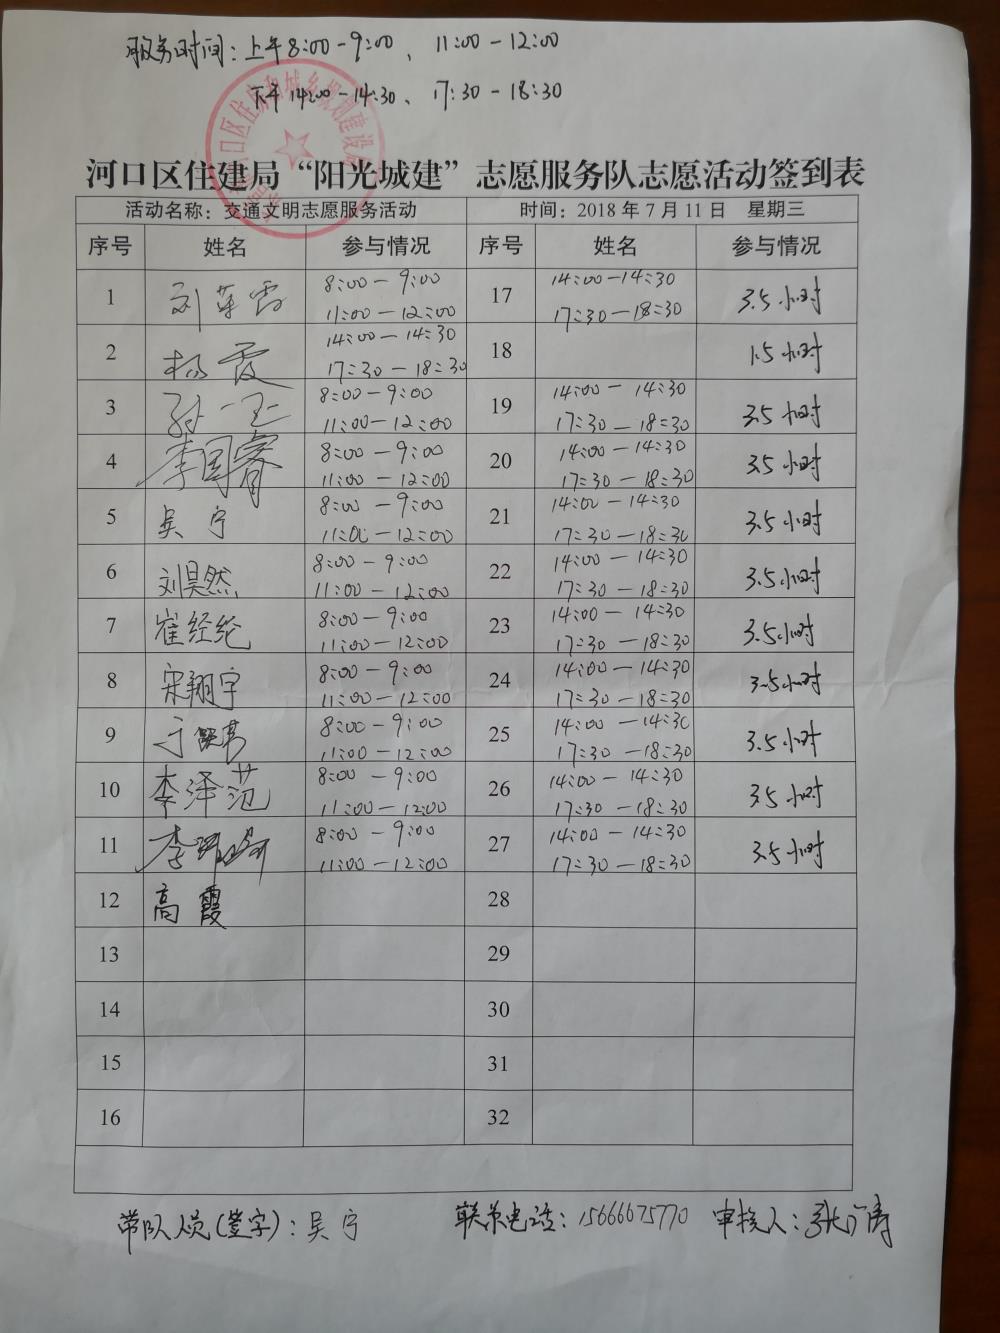 服务时间：上午8:00-9:00、11:00-12:00
下午14:00-14:30、17:30-18:30
河口区住建局“阳光城建”志愿服务队志愿活动签到表
活动名称：交通文明志愿服务活动 时间：2018年7月11日 星期三
序号 姓名 参与情况 序号 姓名 参与情况
1 刘萍霞 8:00-9:00 11:00-12:00 17 14:00-14:30 17:30-18:30 3.5小时
2 杨霞 14:00-14:30 17:30-18:30 18 1.5小时
3 孙一玉 8:00-9:00 11:00-12:00 19 14:00-14:30 17:30-18:30 3.5小时
4 李国睿 8:00-9:00 11:00-12:00 20 14:00-14:30 17:30-18:30 3.5小时
5 吴宁 8:00-9:00 11:00-12:00 21 14:00-14:30 17:30-18:30 3.5小时
6 刘昊然 8:00-9:00 11:00-12:00 22 14:00-14:30 17:30-18:30 3.5小时
7 崔经纶 8:00-9:00 11:00-12:00 23 14:00-14:30 17:30-18:30 3.5小时
8 宋翔宇 8:00-9:00 11:00-12:00 24 14:00-14:30 17:30-18:30 3.5小时
9 于 8:00-9:00 11:00-12:00 25 14:00-14:30 17:30-18:30 3.5小时
10 李泽范 8:00-9:00 11:00-12:00 26 14:00-14:30 17:30-18:30 3.5小时
11 李 8:00-9:00 11:00-12:00 27 14:00-14:30 17:30-18:30 3.5小时
12 高霞 28
13 29
14 30
15 31
16 32
带队人员(签字)：吴宁 联系电话：15666675770 审核人：张广涛